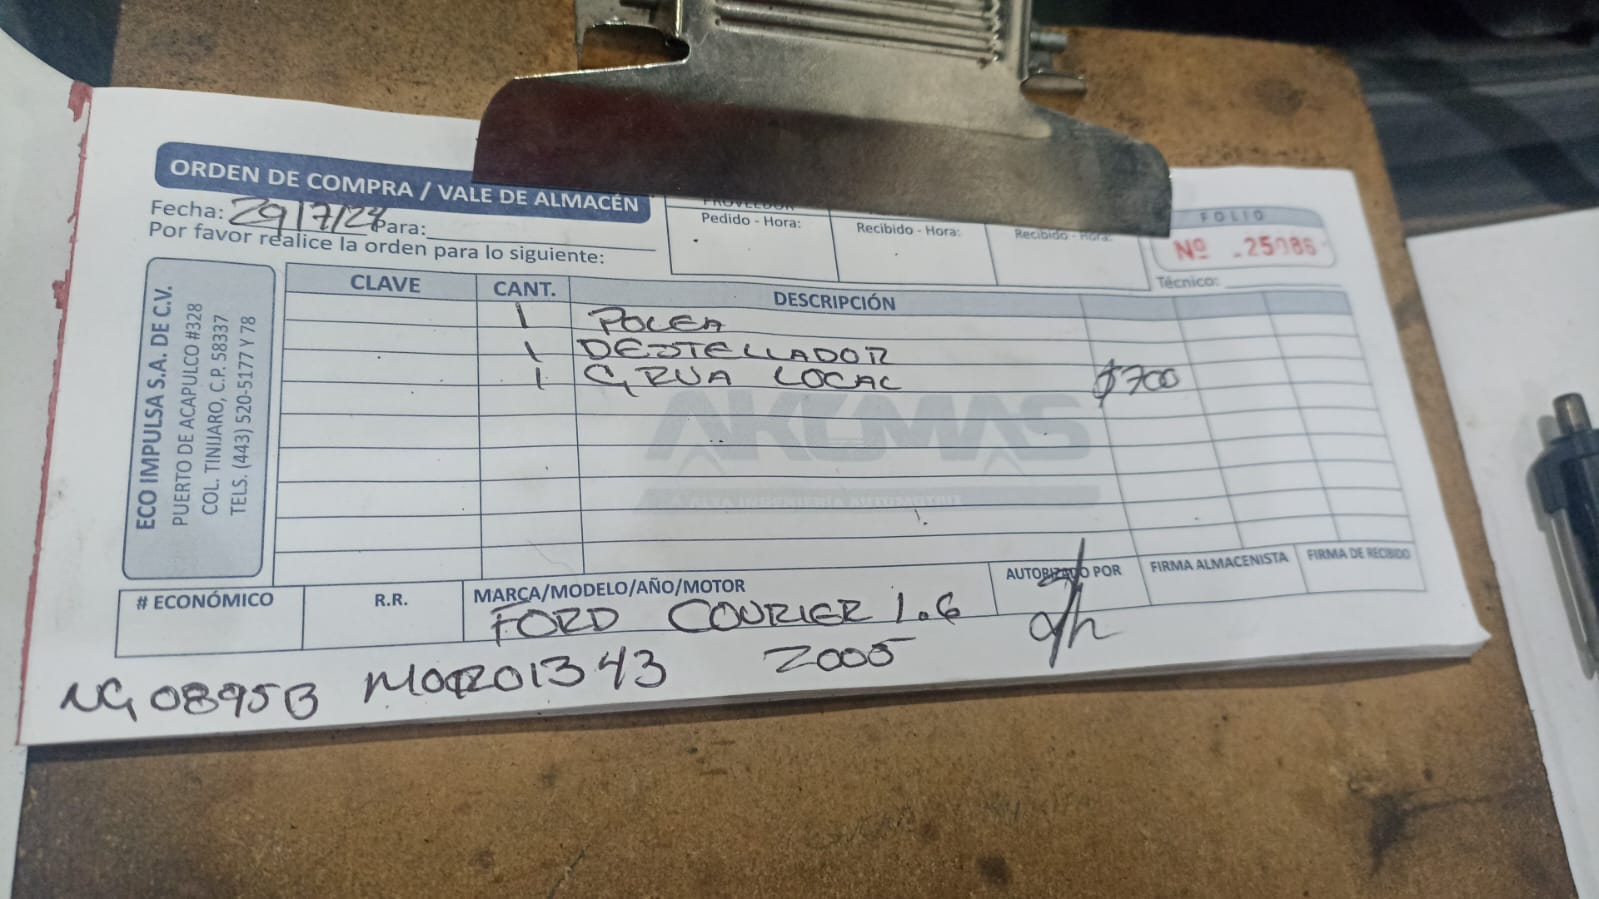 ORDEN DE COMPRA / VALE DE ALMACÉN
Fecha: 29/7/24 Para:
Por favor realice la orden para lo siguiente:
PROVEEDOR
Pedido - Hora:
Recibido - Hora:
Recibido - Hora:
FOLIO
Nº 25086
Técnico:
ECO IMPULSA S.A. DE C.V.
PUERTO DE ACAPULCO #328
COL. TINIJARO, C.P. 58337
TELS. (443) 520-5177 Y 78
CLAVE CANT. DESCRIPCIÓN
1 POLEA
1 DESTELLADOR
1 GRUA LOCAL $700
AKUMAS
ALTA INGENIERÍA AUTOMOTRIZ
# ECONÓMICO R.R. MARCA/MODELO/AÑO/MOTOR AUTORIZADO POR FIRMA ALMACENISTA FIRMA DE RECIBIDO
FORD COURIER 1.6
NG0895B 2005